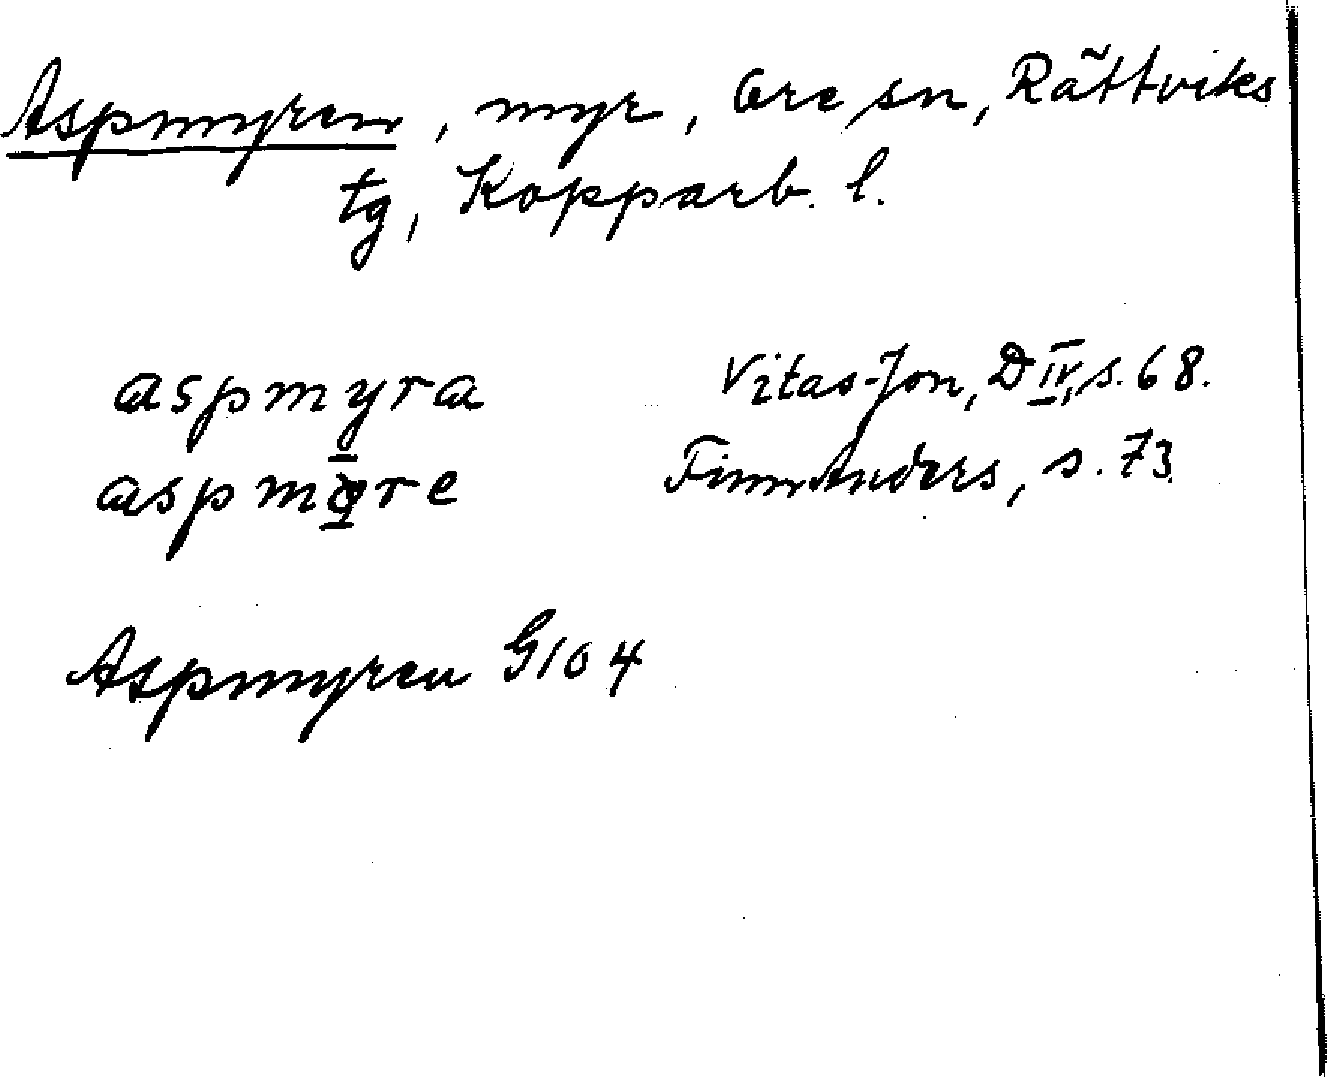 Aspmyren, myr, Ore sn, Rättviks
tg, Kopparb. l.
aspmyra Vitas-Jon, D IV, s. 68.
Finn Anders, s. 73
Aspmyren G104